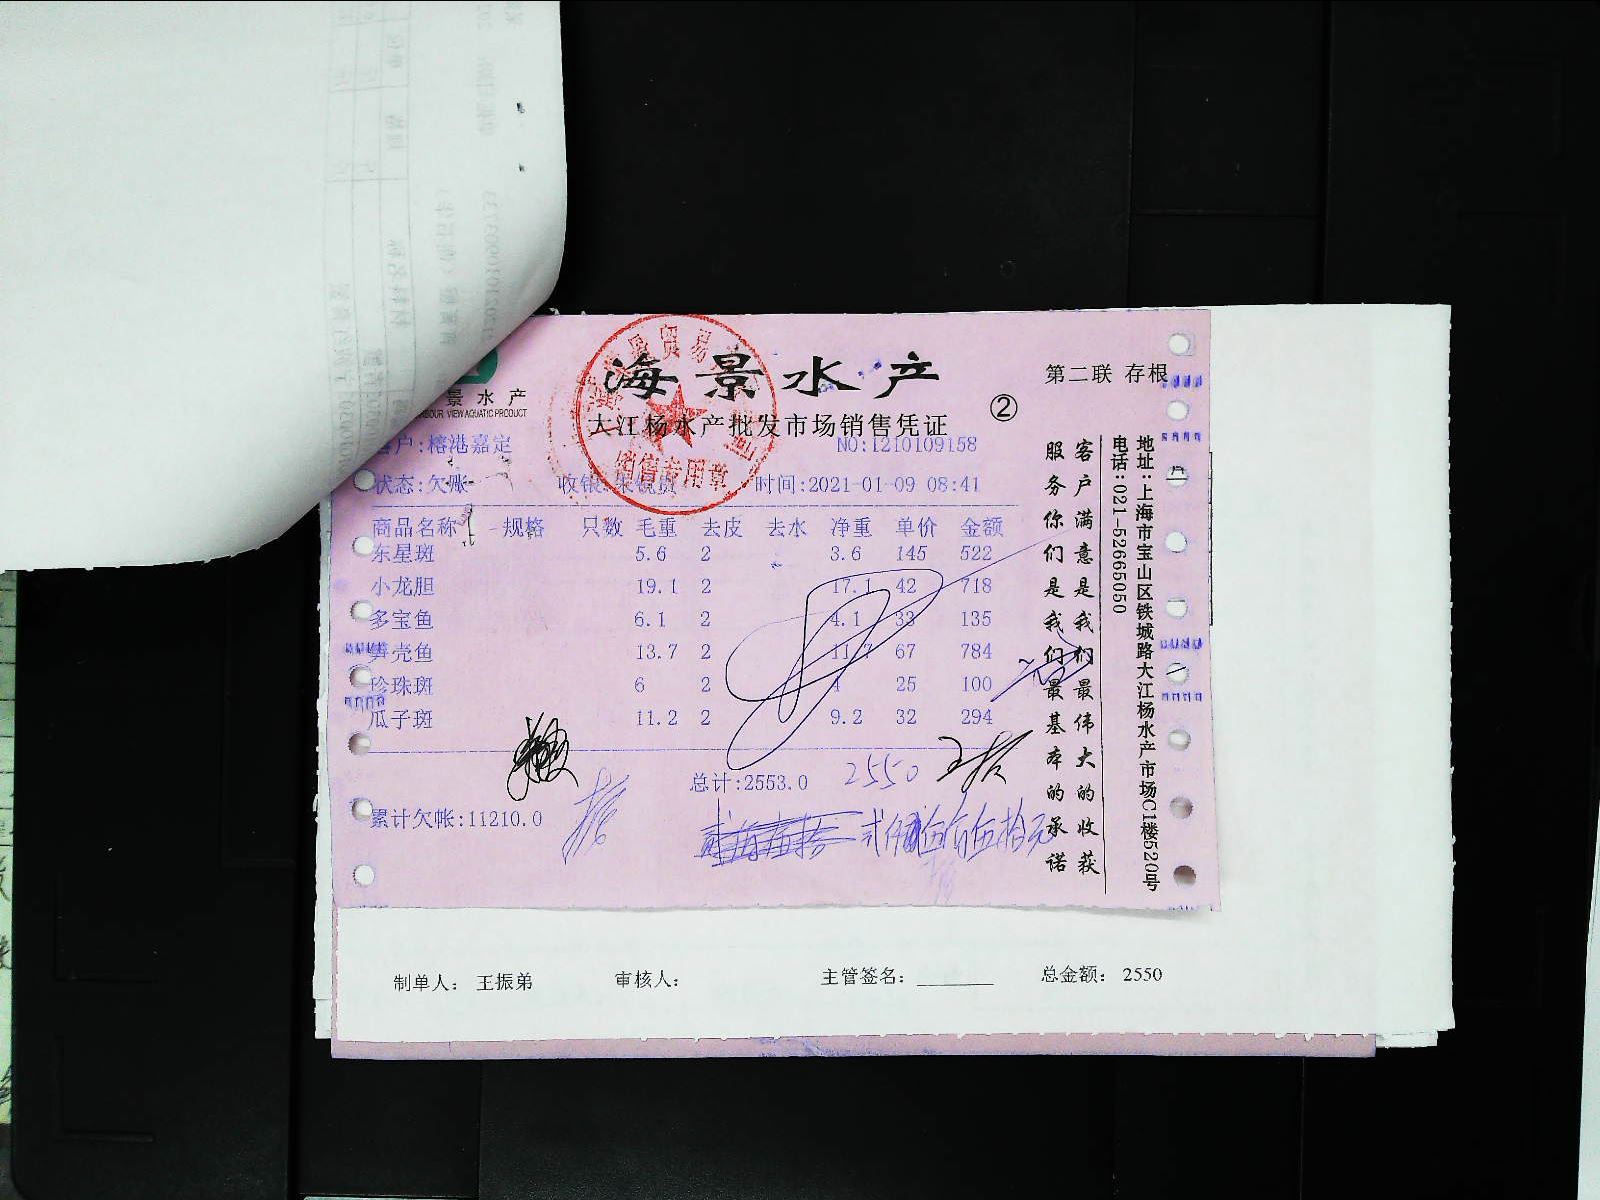 海景水产
景水产
VIEW AQUATIC PRODUCT
大江杨水产批发市场销售凭证
②
第二联 存根
贸易
销售专用章
客户:榕港嘉定
NO:1210109158
状态:欠账
收银:
时间:2021-01-09 08:41
商品名称 规格 只数 毛重 去皮 去水 净重 单价 金额
东星斑 5.6 2 3.6 145 522
小龙胆 19.1 2 17.1 42 718
多宝鱼 6.1 2 4.1 33 135
笋壳鱼 13.7 2 11.7 67 784
珍珠斑 6 2 4 25 100
瓜子斑 11.2 2 9.2 32 294
总计:2553.0 2550
累计欠帐:11210.0
贰仟伍佰伍拾元
客户满意是我们最伟大的收获
服务你们是我们最基本的承诺
地址:上海市宝山区铁城路大江杨水产市场C1楼520号
电话:021-52665050
制单人: 王振弟 审核人: 主管签名: 总金额: 2550